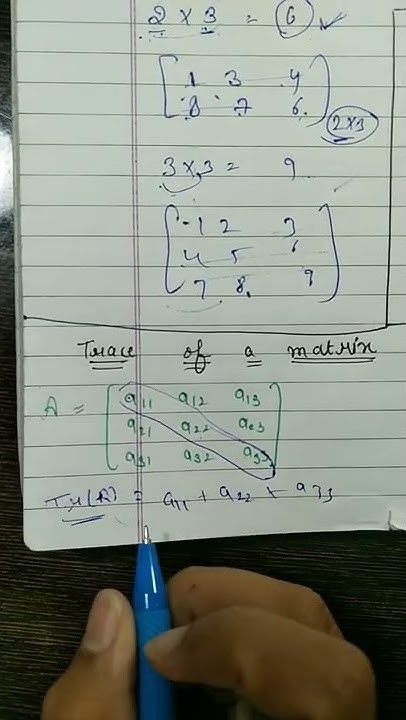 2 × 3 = 6 ✓
1 3 4
8 7 6
2×3
3×3 = 9
1 2 3
4 5 6
7 8 9
Trace of a matrix
A = a11 a12 a13
a21 a22 a23
a31 a32 a33
Tr(A) = a11 + a22 + a33